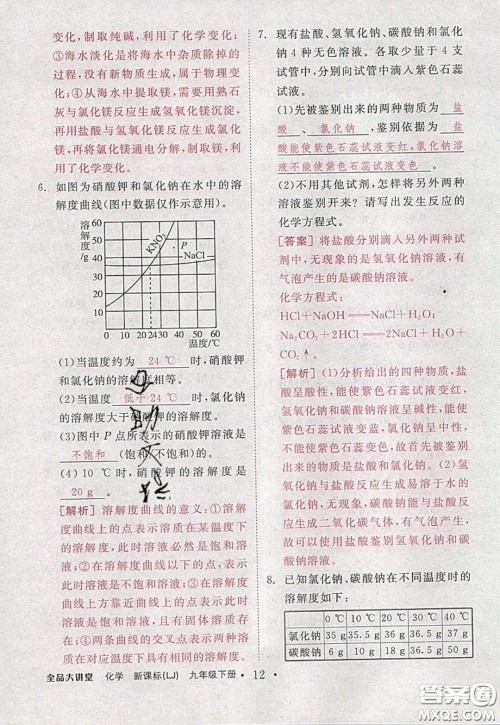 变化，有纯碱，利用了化学变化；
③海水淡化是将海水中杂质除掉的
过程，没有新物质生成，属于物理变
化；④从海水中提取镁，需要用熟石
灰与氯化镁反应生成氢氧化镁沉淀，
再用盐酸与氢氧化镁反应生成氯化
镁，再将氯化镁通电分解，制取镁，利
用了化学变化。
6. 如图为硝酸钾和氯化钠在水中的溶
解度曲线(图中数据仅作示意用)。
溶解度/g
60
50
40
30
20
10
KNO₃
P
NaCl
0 10 20 24 30 40 50 60
温度/℃
(1)当温度约为 24 ℃ 时，硝酸钾
和氯化钠的溶解度相等。
(2)当温度 低于 24 ℃ 时，氯化钠
的溶解度大于硝酸钾的溶解度。
(3)图中 P 点所表示的硝酸钾溶液
是 不饱和 (饱和/不饱和)的。
(4)10 ℃时，硝酸钾的溶解度是
20 g 。
[解析] 溶解度曲线的意义：①溶解
度曲线上的点表示溶质在某温度下
的溶解度，此时溶液必然是饱和溶
液；②在溶解度曲线以下的点，表示
此时溶液是不饱和溶液；③在溶解
度曲线以上的点，表示此时溶液是
饱和溶液，且溶质有剩余；
点；④两条曲线的交叉点表示两种
溶质在该点表示的温度下溶解度相
等。
7. 现有盐酸、氢氧化钠、碳酸钠和氯化
钠 4 种无色溶液。各取少量于 4 支
试管中，分别向试管中滴入紫色石蕊
试液。
(1)先被鉴别出来的两种物质为 盐
酸 、 氯化钠 ，鉴别依据为 盐
酸能使紫色石蕊试液变红，氯化钠溶
液不能使紫色石蕊试液变色 。
(2)不用其他试剂，怎样将另外两种
的溶液鉴别开来？请写出发生反应
的化学方程式。
[答案] 将盐酸分别滴入另外两种试
剂中，无现象的是氢氧化钠溶液，有
气泡产生的是碳酸钠溶液。
化学方程式：
HCl+NaOH══NaCl+H₂O；
Na₂CO₃+2HCl══2NaCl+H₂O+
CO₂↑
[解析] (1)分析给出的四种物质，盐
酸呈酸性，能使紫色石蕊试液变红，
氢氧化钠和碳酸钠溶液呈碱性，能使
紫色石蕊试液变蓝，氯化钠呈中性，
不能使紫色石蕊变色，故首先被鉴别
出来的为盐酸和氯化钠。(2)氢氧化
钠与盐酸反应生成易溶于水的氯化
钠，无现象，碳酸钠能与盐酸反应生
成二氧化碳气体，有气泡产生，故
可以使用盐酸鉴别氢氧化钠溶液和
碳酸钠溶液。
8. 已知氯化钠、碳酸钠在不同温度时的
溶解度如下：
0 ℃ 10 ℃ 20 ℃ 30 ℃ 40 ℃
氯化钠 35 g 35.5 g 36 g 36.5 g 37 g
碳酸钠 6 g 10 g 18 g 36.5 g 50 g
全品大讲堂 化学 新课标(LJ) 九年级下册 • 12 •